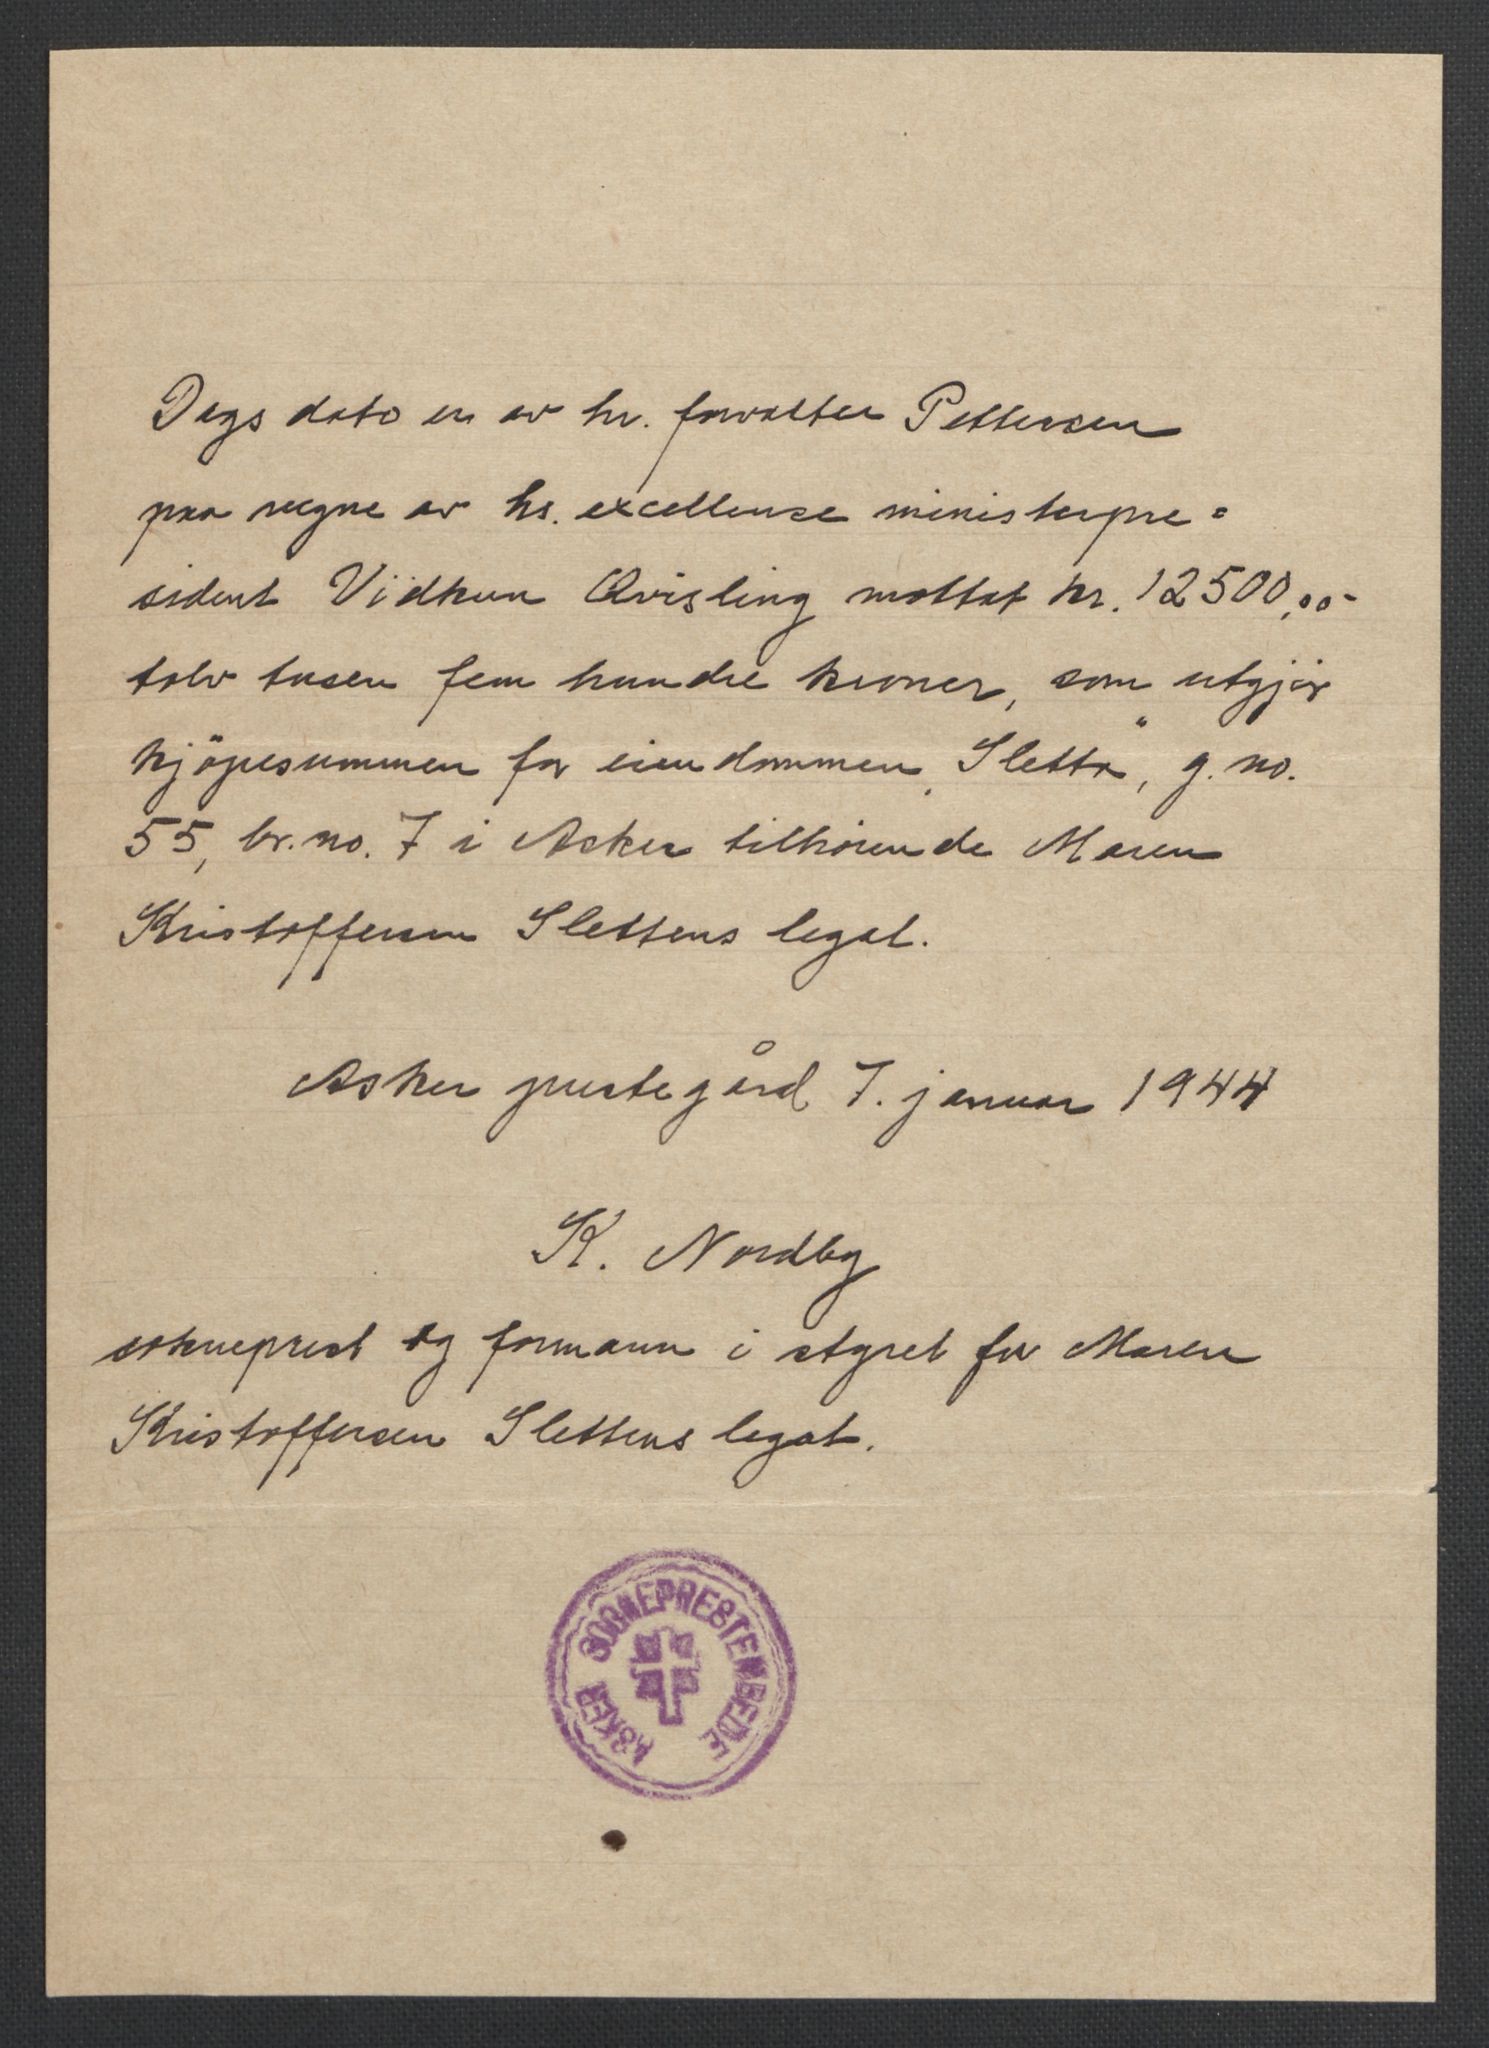 Dags dato er av hr. forvalter Pettersen
paa vegne av hs. excellense ministerpre=
sident Vidkun Qvisling mottat kr. 12500,00-
tolv tusen fem hundre kroner, som utgjør
kjöpesummen for eiendommen „Sletta“, g. no.
55, br. no. 7 i Asker tilhørende Maren
Kristoffersen Slettens legat.
Asker prestegård 7. januar 1944
K. Nordby
sokneprest og formann i styret for Maren
Kristoffersen Slettens legat.
ASKER SOGNEPRESTEMBEDE